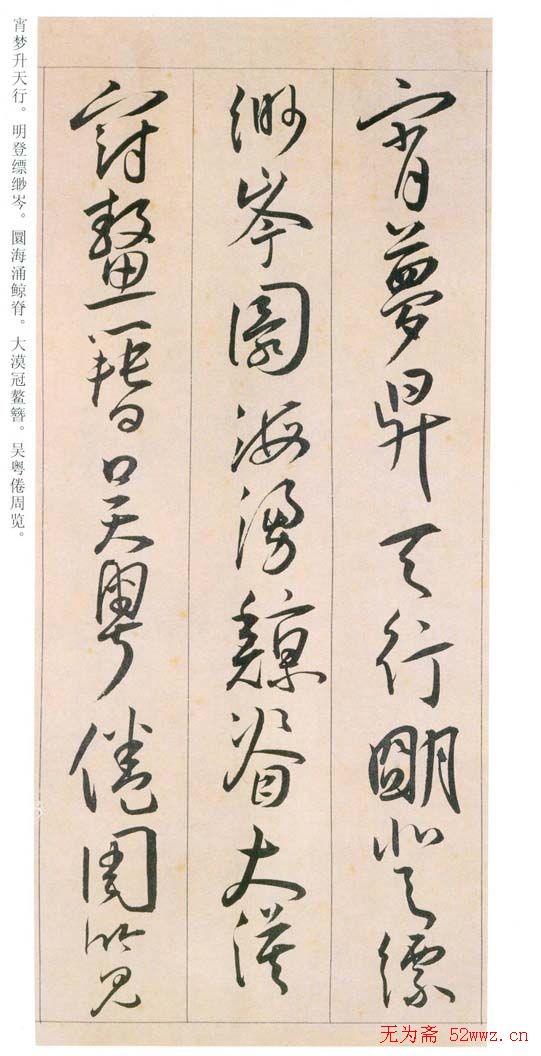 宵夢昇天行明登縹
緲岑圜海湧鯨脊大漠
冠鼇簪吳粵倦周覽
宵梦升天行。明登缥缈岑。圜海涌鲸脊。大漠冠鳌簪。吴粤倦周览。
无为斋 52wwz.cn